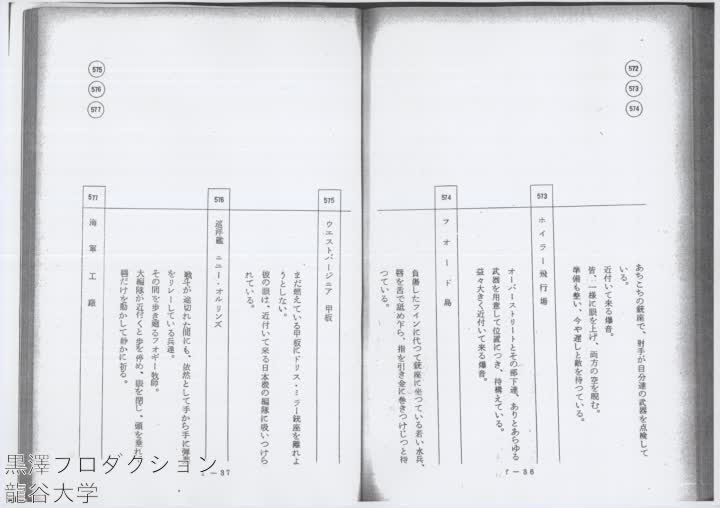 572
573
574
あちこちの銃座で、射手が自分達の武器を点検して
いる。
近付いて来る爆音。
皆、一様に眼を上げ、両方の空を睨む。
準備も整い、今や遅しと敵を待つている。
573
ホイラー飛行場
オーバーストリートとその部下達、ありとあらゆる
武器を用意して位置につき、待構えている。
益々大きく近付いて来る爆音。
574
フオード島
負傷したフインに代つて銃座に坐つている若い水兵、
唇を舌で舐め乍ら、指を引き金に巻きつけじつと待
つている。
F－36
575
576
577
575
ウエストバージニア 甲板
まだ燃えている甲板にドリス・ミラー銃座を離れよ
うとしない。
彼の眼は、近付いて来る日本機の編隊に吸いつけら
れている。
576
巡洋艦 ニユー・オルリンズ
戦斗が途切れた間にも、依然として手から手に弾薬
をリレーしている兵達。
その間を歩き廻るフオギー牧師。
大編隊が近付くと歩を停め、眼を閉じ、頭を垂れ
唇だけを動かして静かに祈る。
577
海軍工廠
－37
黒澤プロダクション
龍谷大学